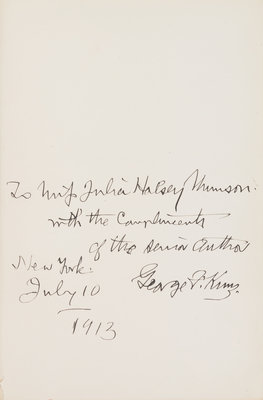 To Miss Julia Halsey Munson.
with the Compliments
of the senior Author
New York.
July 10
1913
George F. Kunz.